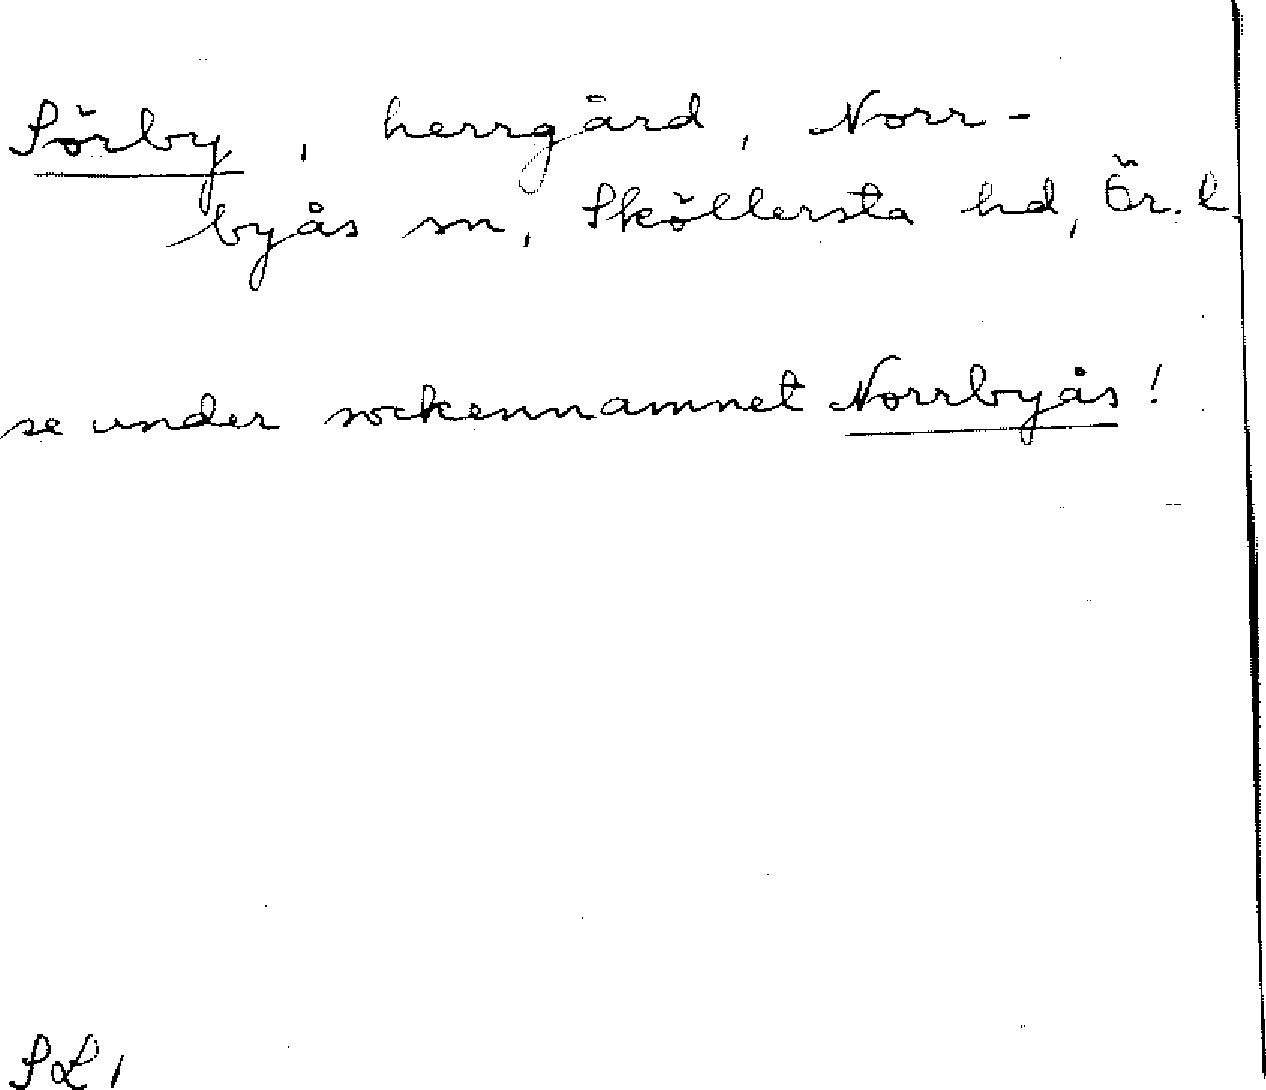 Sörby, herrgård, Norr-
byås sn, Sköllersta hd, Ör. l
se under sockennamnet Norrbyås!